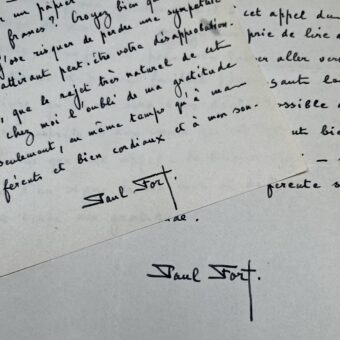 un papier
francs ?! Croyez bien qu
j'ose risquer de perdre une sympathie
attirant peut-être votre désapprobation.
, que le rejet très naturel de cet
chez moi l'oubli de ma gratitude
seulement, en même temps qu'à mon
férents et bien cordiaux et à mon son-
Paul Fort.
cet appel dan
prie de lire a
er aller ver
sant la
ossible
t bien
férente s
de.
Paul Fort.